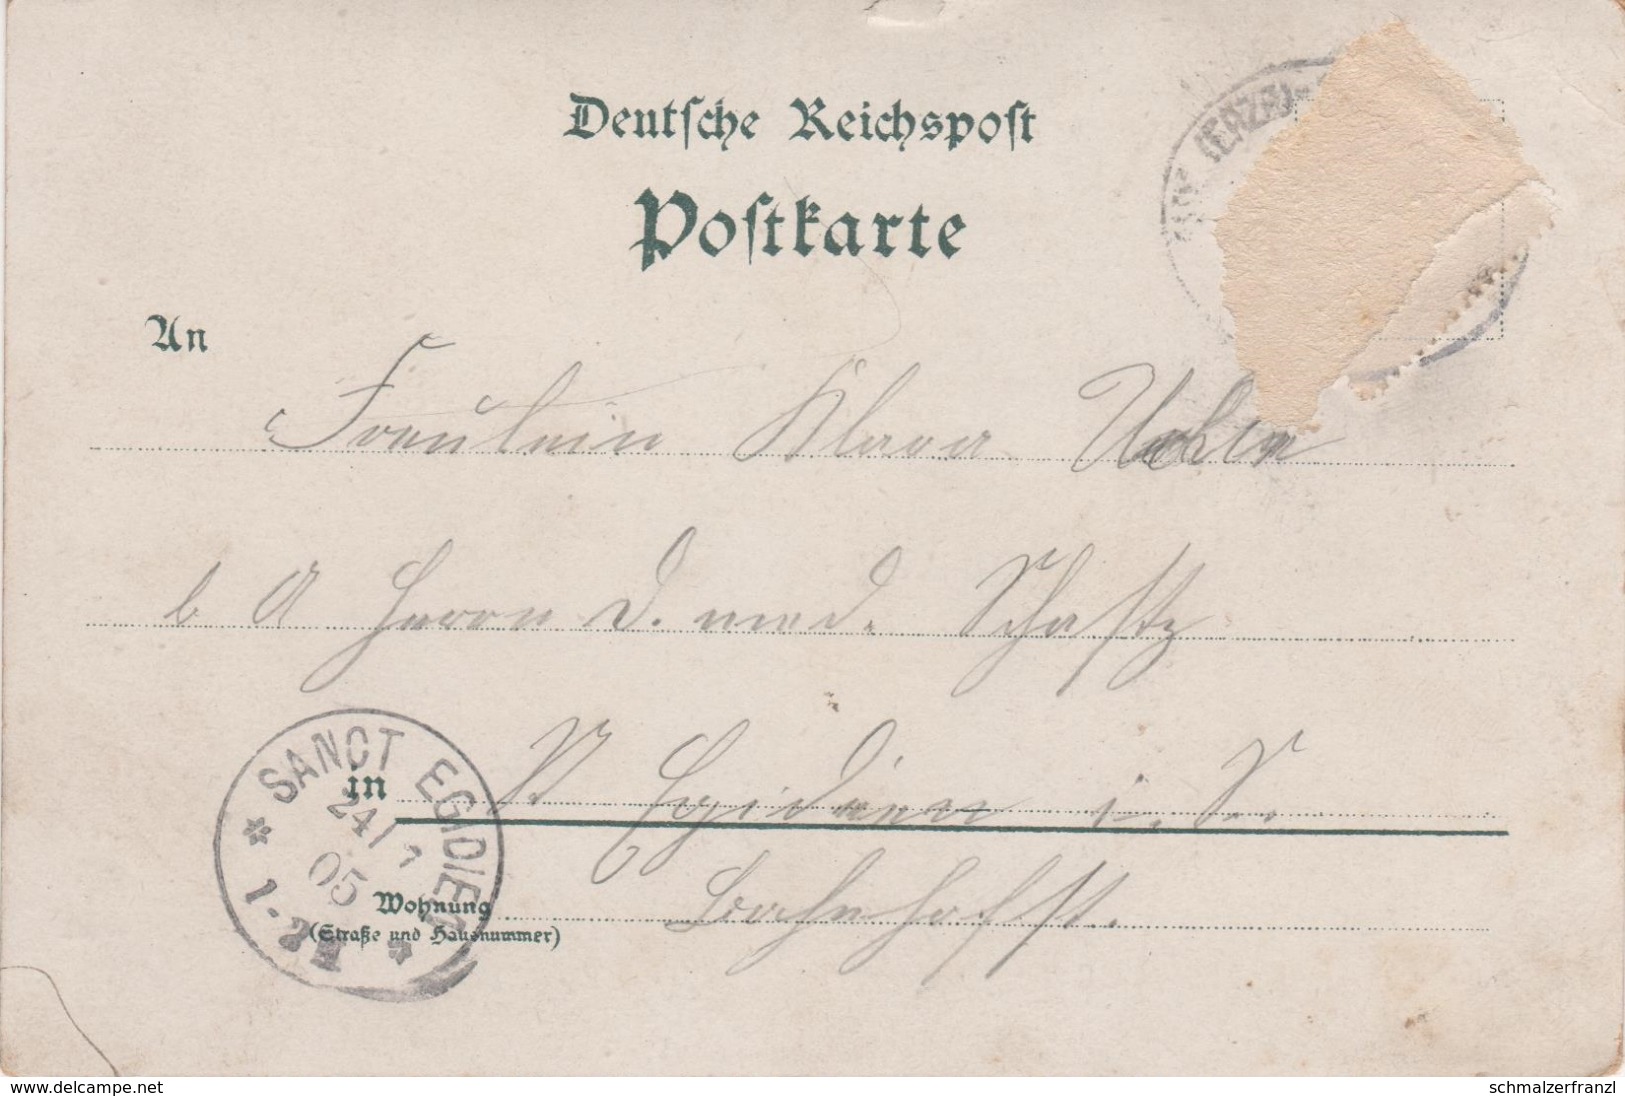 Deutsche Reichspost
Postkarte
(ERZG)
An
Fräulein Klara
b A Herrn D. med.
SANCT EGIDIEN
24/7
05
1-2N
in St Egidien i. S.
Wohnung
(Straße und Hausnummer)
Bahnhofst.
www.delcampe.net
schmalzerfranzl